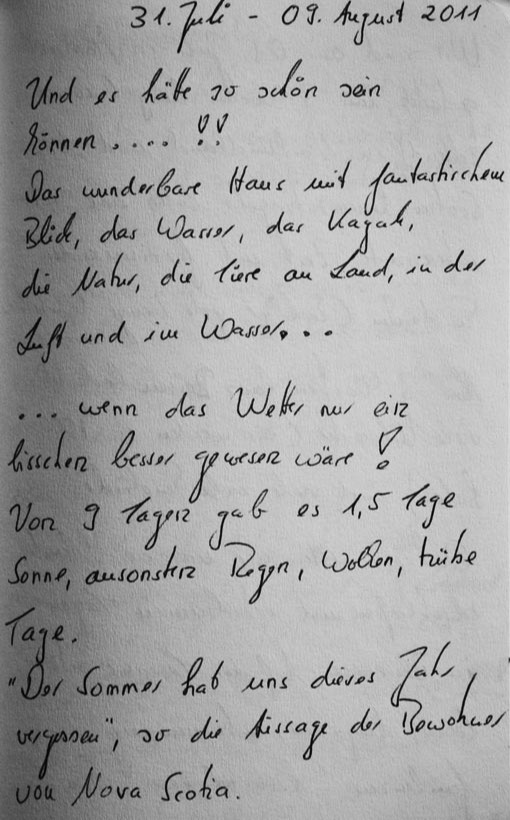 31. Juli - 09. August 2011
Und es hätte so schön sein
können .... !!
Das wunderbare Haus mit fantastischem
Blick, das Wasser, das Kayak,
die Natur, die Tiere an Land, in der
Luft und im Wasser...
... wenn das Wetter nur ein
bisschen besser gewesen wäre !
Von 9 Tagen gab es 1,5 Tage
Sonne, ansonsten Regen, Wolken, trübe
Tage.
"Der Sommer hat uns dieses Jahr
vergessen", so die Aussage der Bewohner
von Nova Scotia.